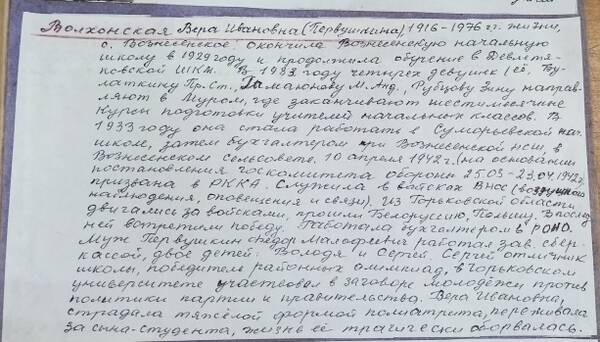 Волхонская Вера Ивановна (Первушкина), 1916-1976 гг. жизни,
с. Вознесенское. окончила Вознесенскую начальную
школу в 1929 году и продолжила обучение в Девлетя-
ковской ШКМ. В 1933 году четырех девушек (её, Бу-
латкину Пр. Ст., Гамаюнову М. Анд., Рубцову Зину направ-
ляют в Муром, где заканчивают шестимесячные
курсы подготовки учителей начальных классов. В
1933 году она стала работать в Суморьевской нач.
школе, затем бухгалтером при Вознесенской нсш, в
Вознесенском сельсовете. 10 апреля 1942 г. (на основании
постановления госкомитета обороны 25.03-23.04.1942г.
призвана в РККА. Служила в войсках ВНОС (воздушного
наблюдения, оповещения и связи). Из Горьковской области
двигались за войсками, прошли Белоруссию, Польшу,
ней встретили победу. Работала бухгалтером в РОНО.
Муж Первушкин Фёдор Малафеевич работал зав. сбер-
кассой, двое детей: Володя и Сергей. Сергей отличник
школы, победитель районных олимпиад, в горьковском
университете участвовал в заговоре молодёжи против
политики партии и правительства. Вера Ивановна,
страдала тяжёлой формой полиартрита, переживала
за сына-студента, жизнь её трагически оборвалась.